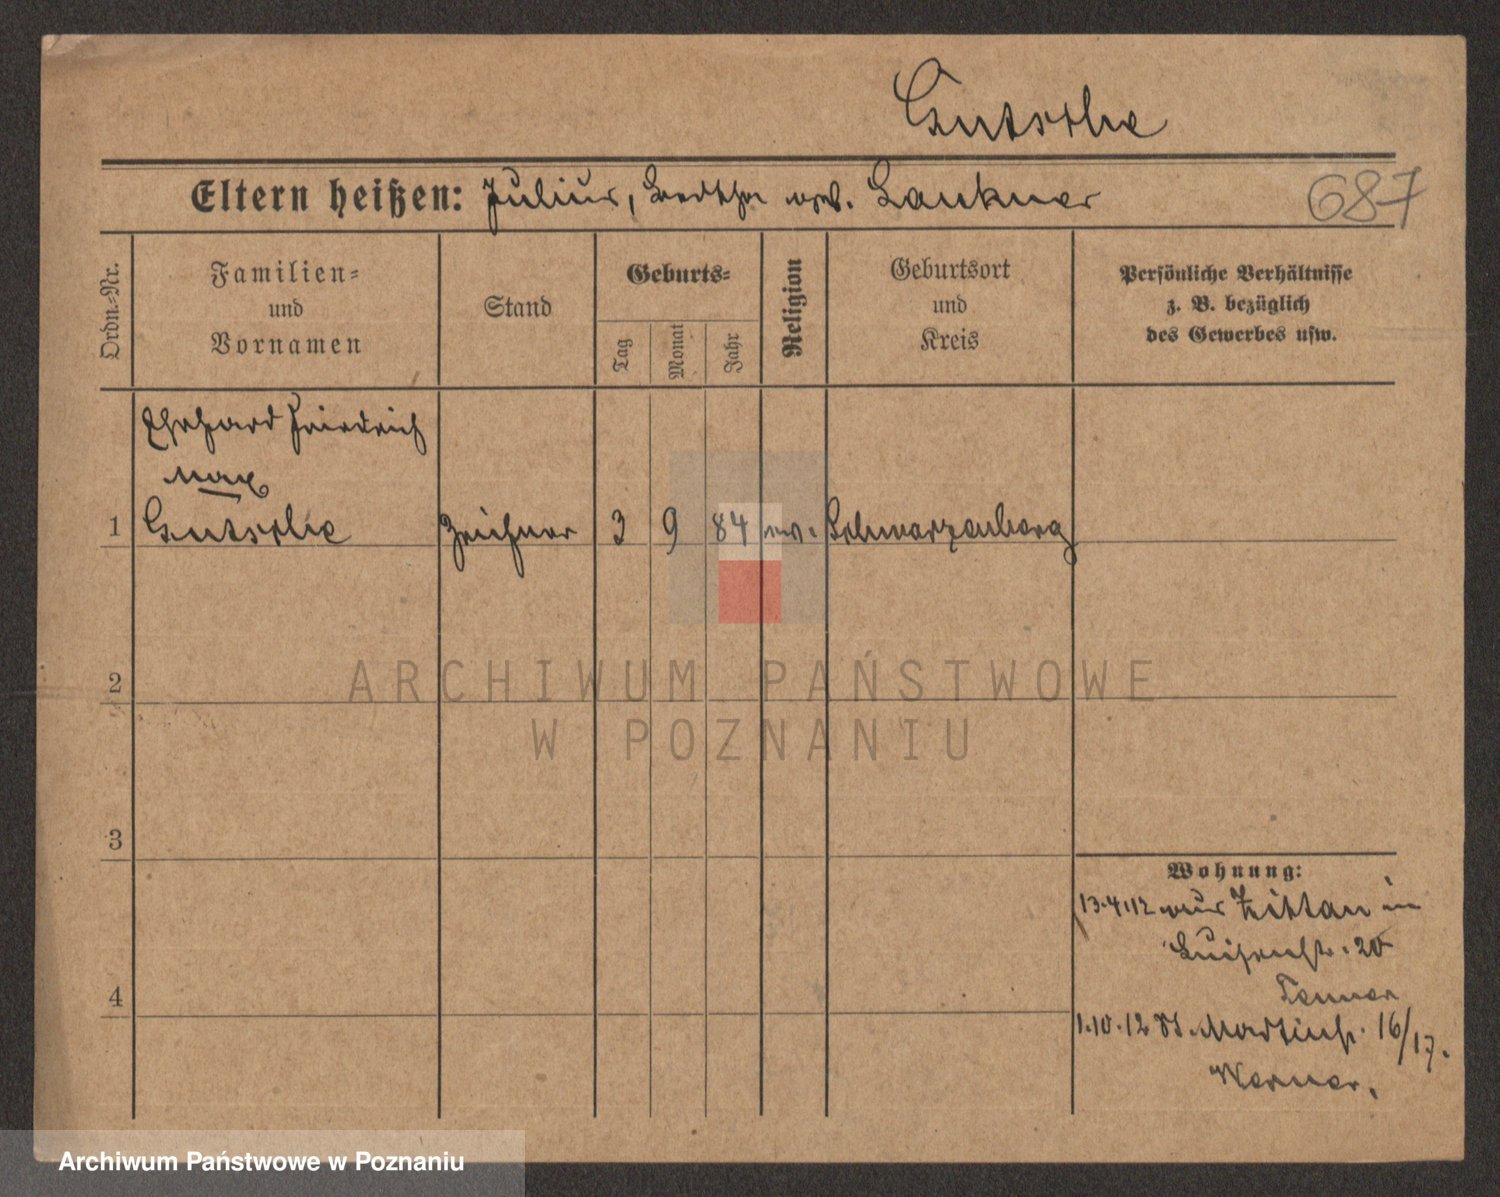 Gutsche
Eltern heißen: Julius, Bertha geb. Lankner
687
Ordn.-Nr.
Familien-
und
Vornamen
Stand
Geburts-
Tag
Monat
Jahr
Religion
Geburtsort
und
Kreis
Persönliche Verhältnisse
z. B. bezüglich
des Gewerbes usw.
Friedrich
Max
1 Gutsche Zeichner 3 9 84 ev. Schwarzenberg
2
3
4
Wohnung:
13.4.12 aus Zittau in
Luisenstr. 20
1.10.12 St. Martinstr. 16/17.
Werner.
ARCHIWUM PAŃSTWOWE
W POZNANIU
Archiwum Państwowe w Poznaniu